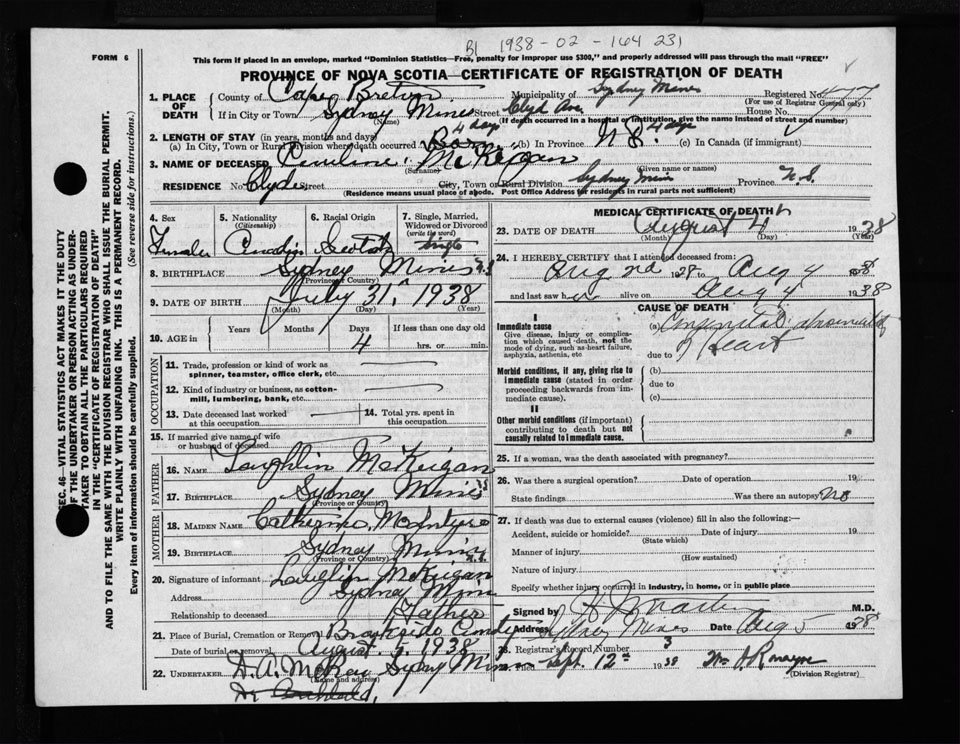 B1 1938-02-164 231
FORM 6
This form if placed in an envelope, marked "Dominion Statistics—Free, penalty for improper use $300," and properly addressed will pass through the mail "FREE"
PROVINCE OF NOVA SCOTIA—CERTIFICATE OF REGISTRATION OF DEATH
1. PLACE OF DEATH
County of Cape Breton Municipality of Sydney Mines Registered No.
(For use of Registrar General only)
If in City or Town Sydney Mines Street Clyd Ave. House No.
(Name) (If death occurred in a hospital or institution, give the name instead of street and number)
2. LENGTH OF STAY (in years, months and days) 4 days
(a) In City, Town or Rural Division where death occurred Born (b) In Province N.S. 4 dys (c) In Canada (if immigrant)
3. NAME OF DECEASED McKeigan
(Surname) (Given name or names)
RESIDENCE No. Clyde Street City, Town or Rural Division Sydney Mines Province N.S.
(Residence means usual place of abode. Post Office Address for residents in rural parts not sufficient)
4. Sex Female
5. Nationality (Citizenship)
6. Racial Origin Scotch
7. Single, Married, Widowed or Divorced (write the word) Single
8. BIRTHPLACE Sydney Mines N.S.
(Province or Country)
9. DATE OF BIRTH July 31, 1938
(Month) (Day) (Year)
10. AGE in Years Months Days 4 If less than one day old hrs. or min.
OCCUPATION
11. Trade, profession or kind of work as spinner, teamster, office clerk, etc.
12. Kind of industry or business, as cotton-mill, lumbering, bank, etc.
13. Date deceased last worked at this occupation
14. Total yrs. spent in this occupation
15. If married give name of wife or husband of deceased
FATHER
16. NAME Laughlin McKeigan
17. BIRTHPLACE Sydney Mines N.S.
(Province or Country)
MOTHER
18. MAIDEN NAME Catherine McIntyre
19. BIRTHPLACE Sydney Mines N.S.
(Province or Country)
20. Signature of informant Lauglin McKeigan
Address Sydney Mines
Relationship to deceased Father
21. Place of Burial, Cremation or Removal Brookside
Date of burial or removal August 1938
22. UNDERTAKER Sydney Mines
(Name and address)
MEDICAL CERTIFICATE OF DEATH
23. DATE OF DEATH August 4th 1938
(Month) (Day) (Year)
24. I HEREBY CERTIFY that I attended deceased from:
Aug 2nd 1938 to Aug 4 1938
and last saw her alive on Aug 4 1938
CAUSE OF DEATH
I
Immediate cause
Give disease, injury or complication which caused death, not the mode of dying, such as heart failure, asphyxia, asthenia, etc
(a) Congenital
due to of Heart
Morbid conditions, if any, giving rise to immediate cause (stated in order proceeding backwards from immediate cause).
(b)
due to
(c)
II
Other morbid conditions (if important) contributing to death but not causally related to immediate cause.
25. If a woman, was the death associated with pregnancy?
26. Was there a surgical operation? Date of operation 19
State findings Was there an autopsy No
27. If death was due to external causes (violence) fill in also the following:—
Accident, suicide or homicide? Date of injury 19
(State which)
Manner of injury
(How sustained)
Nature of injury
Specify whether injury occurred in industry, in home, or in public place
Signed by M.D.
Address Sydney Mines Date Aug 5 1938
28. Registrar's Record Number 3
Filed Sept. 12th 1938
(Division Registrar)
SEC. 46—VITAL STATISTICS ACT MAKES IT THE DUTY OF THE UNDERTAKER OR PERSON ACTING AS UNDERTAKER TO OBTAIN ALL THE PARTICULARS REQUIRED IN THE "CERTIFICATE OF REGISTRATION OF DEATH" AND TO FILE THE SAME WITH THE DIVISION REGISTRAR WHO SHALL ISSUE THE BURIAL PERMIT.
WRITE PLAINLY WITH UNFADING INK. THIS IS A PERMANENT RECORD.
Every item of information should be carefully supplied. (See reverse side for instructions.)